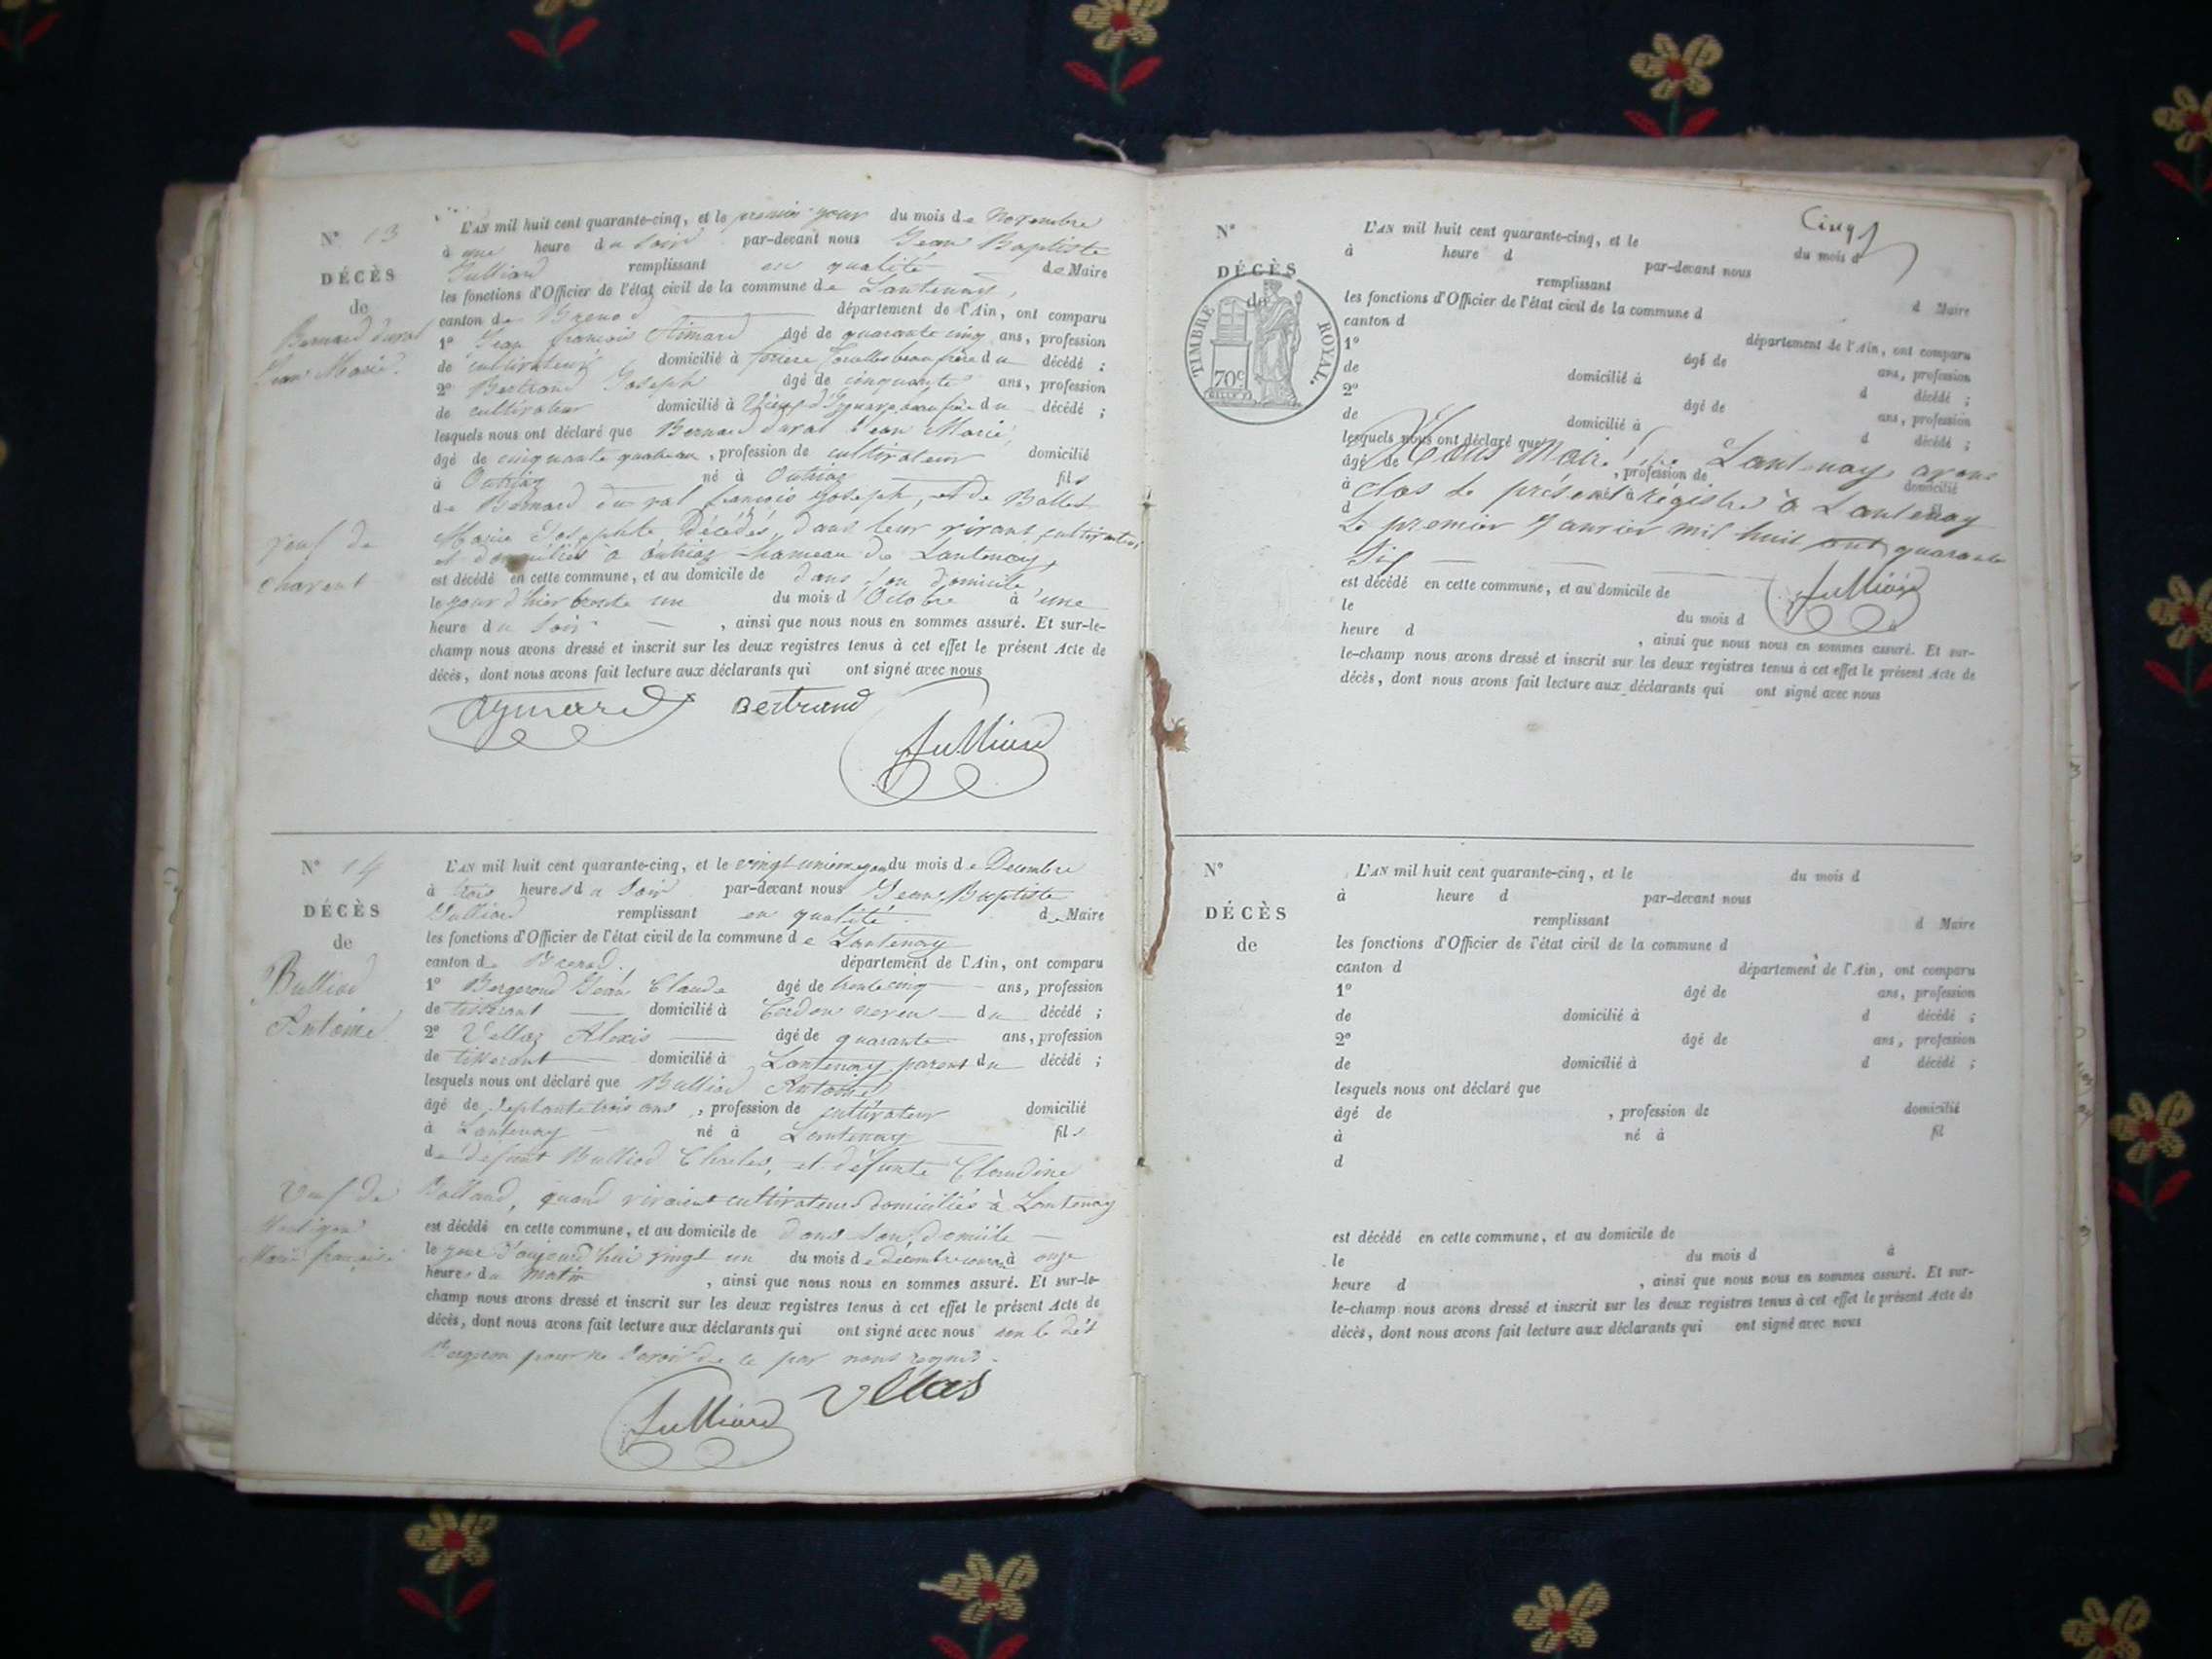 N° 13
DÉCÈS
de
Bernard duval
Jean Marie.
veuf de
Charent
L'AN mil huit cent quarante-cinq, et le premier jour du mois de Novembre
à une heure du Soir par-devant nous Jean Baptiste
Julliard remplissant en qualité de Maire
les fonctions d'Officier de l'état civil de la commune de Lantenay,
canton de Brenod département de l'Ain, ont comparu
1° Jean françois Aimard âgé de quarante cinq ans, profession
de cultivateur domicilié à beau frère du décédé ;
2° Bertrand Joseph âgé de cinquante ans, profession
de cultivateur domicilié à Vieux d'Izenave beau frère du décédé ;
lesquels nous ont déclaré que Bernard duval Jean Marie,
âgé de cinquante quatre ans, profession de cultivateur domicilié
à Outriaz né à Outriaz fils
de Bernard du val françois Joseph, et de Ballet
Marie Josephte Décédés, dans leur vivant cultivateurs
et domiciliés à Outriaz hameau de Lantenay,
est décédé en cette commune, et au domicile de dans son domicile
le jour d'hier trente un du mois d'Octobre à une
heure du Soir , ainsi que nous nous en sommes assuré. Et sur-le-
champ nous avons dressé et inscrit sur les deux registres tenus à cet effet le présent Acte de
décès, dont nous avons fait lecture aux déclarants qui ont signé avec nous
Aymard Bertrand
Julliard
N° 14
DÉCÈS
de
Bulliod
Antoine
Veuf de
Marie françoise
L'AN mil huit cent quarante-cinq, et le vingt unième jour du mois de Décembre
à trois heures du Soir par-devant nous Jean Baptiste
Julliard remplissant en qualité de Maire
les fonctions d'Officier de l'état civil de la commune de Lantenay
canton de Brenod. département de l'Ain, ont comparu
1° Bergerond Jean Claude âgé de trente cinq ans, profession
de tisserant domicilié à Cerdon neveu du décédé ;
2° Vellaz Alexis âgé de quarante ans, profession
de tisserant domicilié à Lantenay parent du décédé ;
lesquels nous ont déclaré que Bulliod Antoine
âgé de septante trois ans , profession de cultivateur domicilié
à Lantenay né à Lantenay fils
de défunt Bulliod Charles, et défunte Claudine
Rolland, quand vivaient cultivateurs domiciliés à Lantenay
est décédé en cette commune, et au domicile de dans son domicile
le jour d'aujourd'hui vingt un du mois de décembre courant à onze
heures du matin , ainsi que nous nous en sommes assuré. Et sur-le-
champ nous avons dressé et inscrit sur les deux registres tenus à cet effet le présent Acte de
décès, dont nous avons fait lecture aux déclarants qui ont signé avec nous non le dit
pour ne savoir de ce par nous requis.
Julliard Vellas
Cinq
N°
DÉCÈS
de
TIMBRE ROYAL.
70c
L'AN mil huit cent quarante-cinq, et le du mois d
à heure d par-devant nous
remplissant d Maire
les fonctions d'Officier de l'état civil de la commune d
canton d département de l'Ain, ont comparu
1° âgé de ans, profession
de domicilié à d décédé ;
2° âgé de ans, profession
de domicilié à d décédé ;
lesquels nous ont déclaré que
Nous Maire de Lantenay avons
âgé de , profession de domicilié
clos le présent Régistre à Lantenay
à né à fil
d
Le premier Janvier mil huit cent quarante
Six
Julliard
est décédé en cette commune, et au domicile de
le du mois d à
heure d , ainsi que nous nous en sommes assuré. Et sur-
le-champ nous avons dressé et inscrit sur les deux registres tenus à cet effet le présent Acte de
décès, dont nous avons fait lecture aux déclarants qui ont signé avec nous
N°
DÉCÈS
de
L'AN mil huit cent quarante-cinq, et le du mois d
à heure d par-devant nous
remplissant d Maire
les fonctions d'Officier de l'état civil de la commune d
canton d département de l'Ain, ont comparu
1° âgé de ans, profession
de domicilié à d décédé ;
2° âgé de ans, profession
de domicilié à d décédé ;
lesquels nous ont déclaré que
âgé de , profession de domicilié
à né à fil
d
est décédé en cette commune, et au domicile de
le du mois d à
heure d , ainsi que nous nous en sommes assuré. Et sur-
le-champ nous avons dressé et inscrit sur les deux registres tenus à cet effet le présent Acte de
décès, dont nous avons fait lecture aux déclarants qui ont signé avec nous